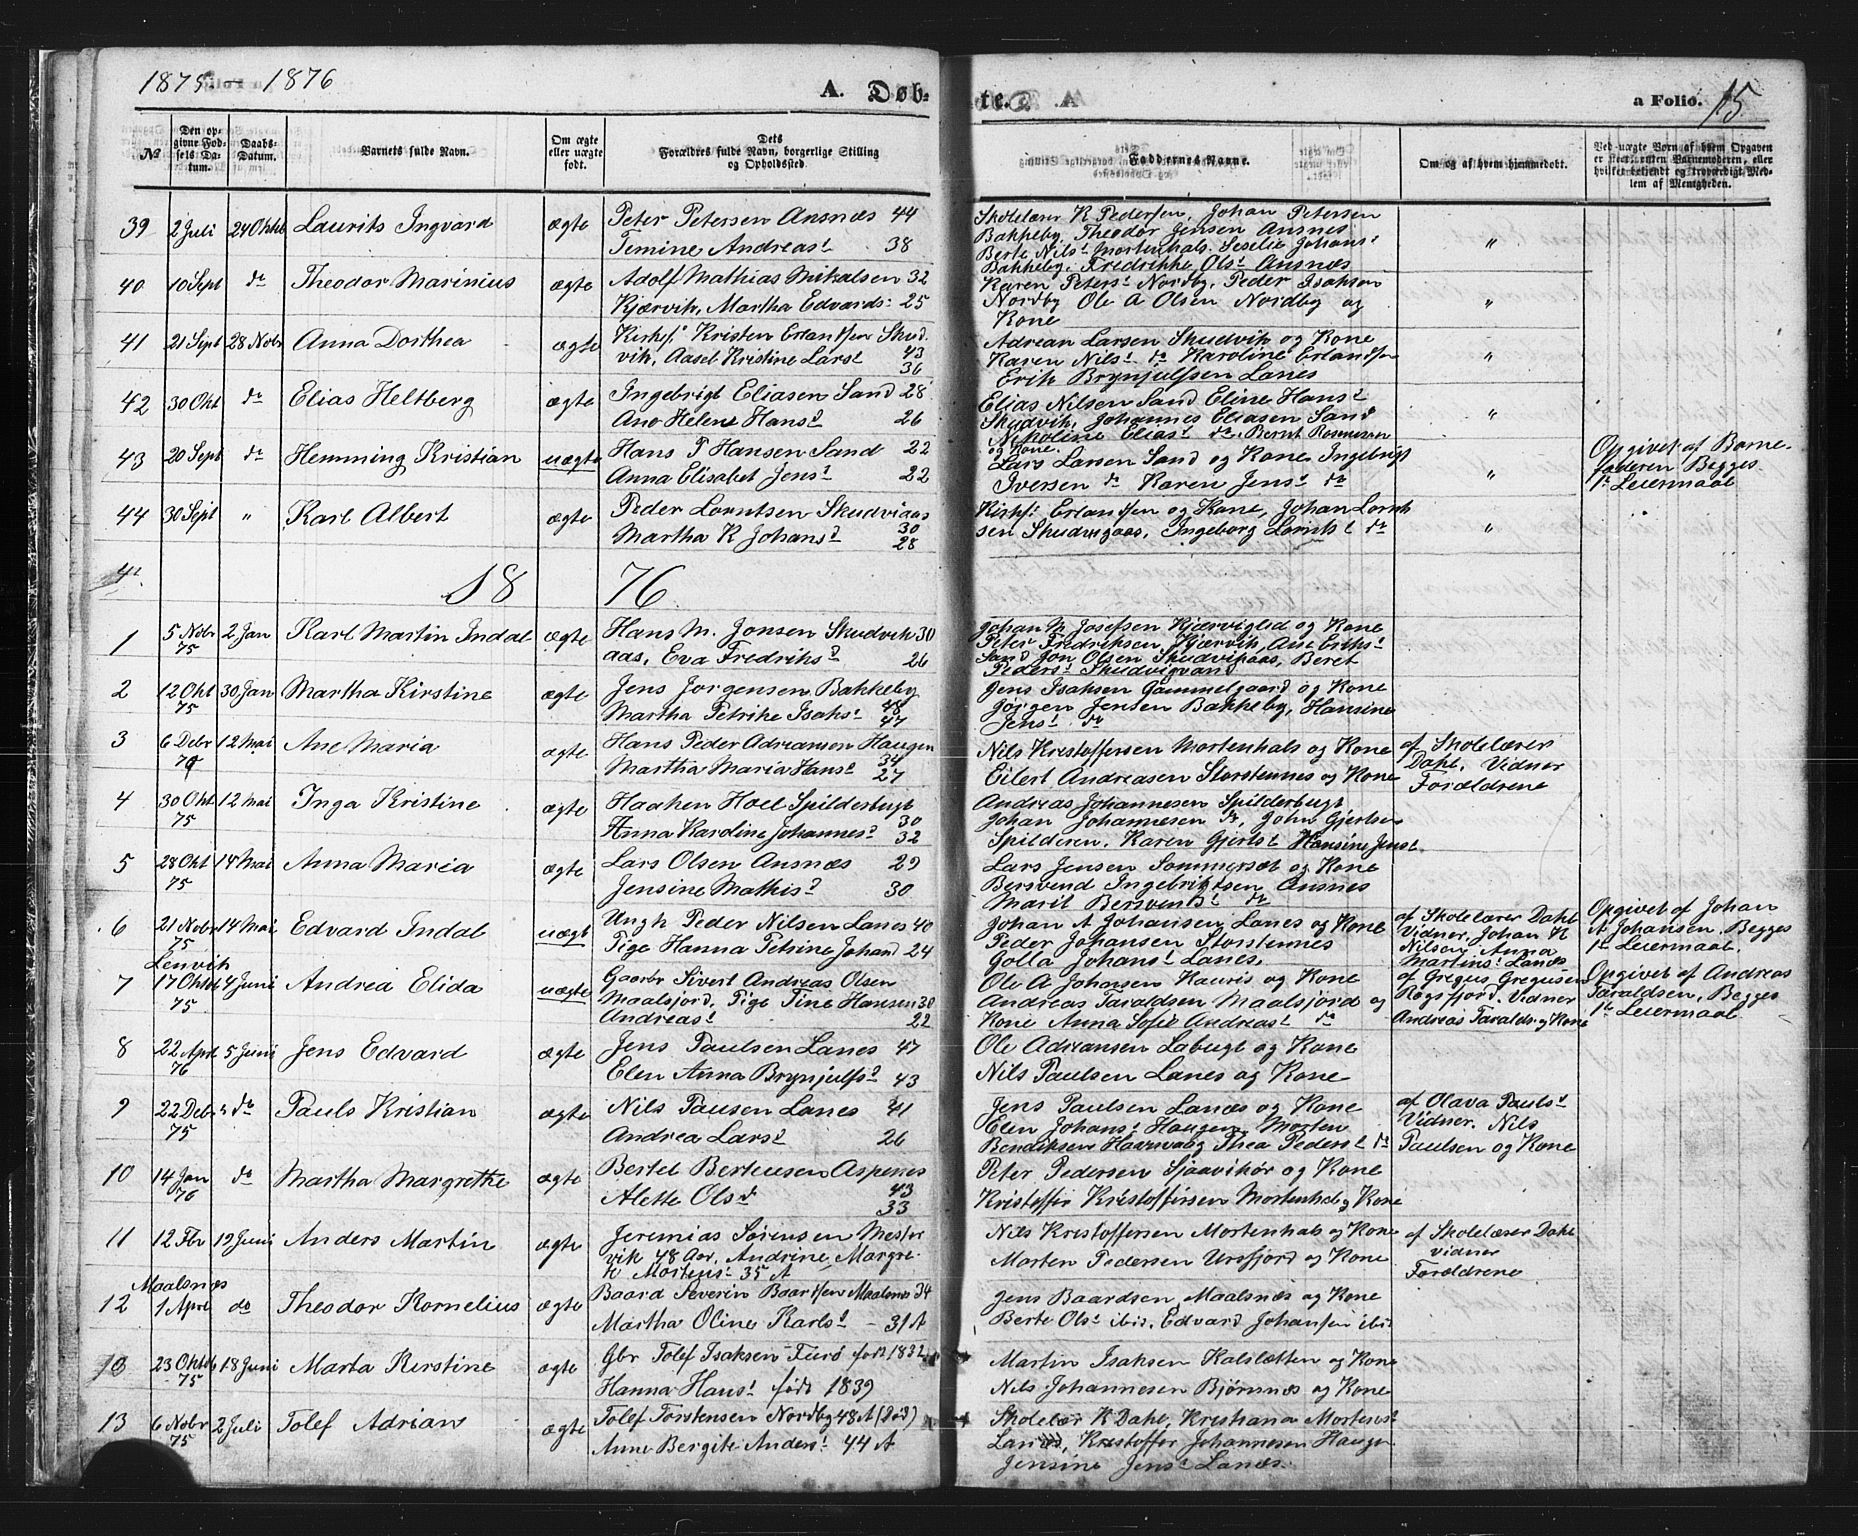 1875 – 1876
A. Døb-
te. A
a Folio. 15
№
Den opgivne Fødsels Datum.
Daabs-Datum.
Barnets fulde Navn.
Om ægte eller uægte født.
Dets Forældres fulde Navn, borgerlige Stilling og Opholdssted.
Faddernes Navne.
Om og af hvem hjemmedøbt.
Ved uægte Børn af hvem Opgaven er skeet, enten Barnemoderen, eller hvilket bekjendt og troværdigt Medlem af Menigheden.
39 2 Juli 24 Oktb Laurits Ingvard ægte Peter Petersen Ansnæs 44
Temine Andreasd 38
Skolelærer K Pedersen, Johan Petersen
Bakkeby Theodor Jensen Ansnes
Berte Nilsd Mortenhals. Seselie Johansd
Bakkeby. Fredrikke Olsd Ansnæs
"
40 10 Sept do Theodor Marinius ægte Adolf Mathias Mikalsen 32
Kjærvik, Martha Edvards: 25
Karen Petersd Nordby, Peder Isaksen
Nordby Ole A Olsen Nordby og
Kone
"
41 21 Sept 28 Nobr Anna Dorthea ægte Kirks: Kristen Erlandsen Skud
vik, Aasel Kristine Larsd 43
36
Adrian Larsen Skudvik og Kone
Karen Nilsd do Karoline Erlandsen
Erik Brynjulfsen Lanes
"
42 30 Okt do Elias Heltberg ægte Ingebrigt Eliasen Sand 28
Ane Helene Hansd 26
Elias Nilsen Sand Eline Hansd
Skudvik, Johannes Eliasen Sand
Nikoline Eliasd do. Bernt Rasmusen
og Kone.
"
43 20 Sept do Hemming Kristian uægte Hans P Hansen Sand 22
Anna Elisabet Jensd 22
Lars Larsen Sand og Kone Ingebrigt
Iversen do Karen Jensd do
"
Opgivet af Barne-
faderen Begges
1te Leiermaal
44 30 Sept " Karl Albert ægte Peder Lorntsen Skudviaas
Martha K Johansd 30
28
Kirks: Erlandsen og Kone, Johan Lornt
sen Skudvigaas, Ingeborg Lorntsd do
"
18 76
1 5 Nobr 75 2 Jan Karl Martin Indal ægte Hans M. Jonsen Skudvik 30
aas, Eva Fredriksd 26
Johan M Josefsen Kjærviglid og Kone
Peter Fredriksen Kjærvik, Ane Eriksd
Sand Jon Olsen Skudvikaas, Beret
Pedersd Skudvigvand
2 12 Okt 75 30 Jan Martha Kirstine ægte Jens Jørgensen Bakkeby
Martha Petrike Isaksd 48
47
Jens Isaksen Gammelgaard og Kone
Jørgen Jensen Bakkeby, Hansine
Jensd do
3 6 Debr 12 Mai Ane Maria ægte Hans Peder Adriansen Haugen
Martha Maria Hansd 34
27
Nils Kristoffersen Mortenhals og Kone
Eilert Andreasen Storstennes og Kone
af Skolelærer
Dahl. Vidner
Forældrene
4 30 Okt 75 12 Mai Inga Kristine ægte Haaken Hoel Spilderbugt
30
Anna Karoline Johannesd 32
Andreas Johannesen Spilderbugt
Johan Johannesen do, John Gjertsen
Spilderen. Karen Gjertsd Hansine Jensd
5 28 Okt 75 14 Mai Anna Maria ægte Lars Olsen Ansnæs 29
Jensine Mathisd 30
Lars Jensen Sommersæt og Kone
Bersvend Ingebrigtsen Ansnes
Marit Bersvensd do
6 21 Nobr 75 14 Mai Edvard Indal uægt Ungk Peder Nilsen Lanes 40
Pige Hanna Petrine Johand 24
Johan A Johansen Lanes og Kone
Peder Johansen Storstennes
Golla Johansd Lanes.
af Skolelærer Dahl
Vidner. Johan K
Nilsen, Anna
Martinsd Lanes
Opgivet af Johan
A Johansen. Begges
1te Leiermaal.
Lenvik
7 17 Oktob 75 4 Juni Andrea Elida uægte Gaarbr Sivert Andreas Olsen
Maalsjord, Pige Tine Hansen 30
Andreasd 22
Ole A Johansen Kauris og Kone
Andreas Taraldsen Maalsjord og
Kone Anna Sofie Andreasd do
af Gregus Gregusen
Rogsfjord. Vidner
Andreas Taralds. og Kone
Opgivet af Andreas
Taraldsen. Begges
1te Leiermaal
8 22 April 76 5 Juni Jens Edvard ægte Jens Paulsen Lanes 47
Elen Anna Brynjulfsd 43
Ole Adriansen Labugt og Kone
Nils Paulsen Lanes og Kone
9 22 Debr 75 do Pauls Kristian ægte Nils Pausen Lanes 41
Andrea Larsd 26
Jens Paulsen Lanæs og Kone
Elen Johansd Haugen Morten
Bendiksen Havnvaag Thea Pedersd do
af Olava Paulsd
Vidner. Nils
Paulsen og Kone
10 14 Jan 76 do Martha Margrethe ægte Bertel Berteusen Aspenes
Alette Olsd 43
33
Peter Pedersen Sjaavikør og Kone
Kristoffer Kristoffersen Mortenhals og Kone
11 12 Fbr 12 Juni Anders Martin ægte Jeremias Sørensen Mester
vik 48 Aar, Andrine Margre-
te Mortensd 35 A
Nils Kristoffersen Mortenhals og Kone
Morten Pedersen Ursfjord og Kone
af Skolelærer Dahl
Vidner
Forældrene
Maalsnæs
12 1 April do Theodor Kornelius ægte Baard Severin Baardsen Maalsnes 34
Martha Oline Karlsd – 31 A
Jens Baardsen, Maalsnæs og Kone
Berte Olsd ibid. Edvard Johansen ibi
13 23 Oktob 75 18 Juni Marta Kirstine ægte Gbr Tolef Isaksen Furø født 1832
Hanna Hansd født 1839
Martin Isaksen Kalslætten og Kone
Nils Johannesen Bjørnnæs og Kone
13 6 Nobr 75 2 Juli Tolef Adrian ægte Tolef Torstensen Nordby 48 A (død)
Anne Bergite Andersd 44 A
Skolelær K Dahl, Kristiana Mortensd
Lanæs, Kristoffer Johannesen Haugen
Jensine Jensd Lanæs.